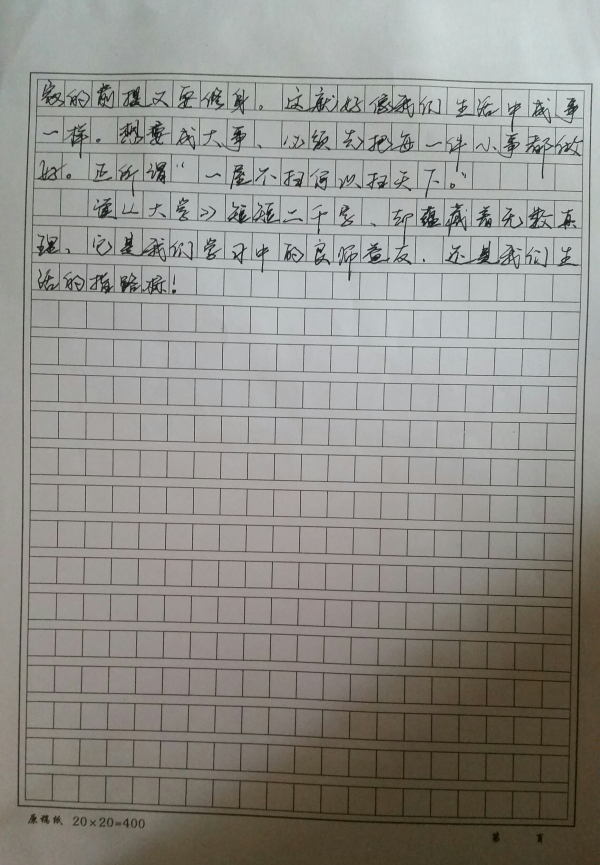 家的前提又要修身。这就好像我们生活中成事
一样。想要成大事、必须先把每一件小事都做
好。正所谓“一屋不扫何以扫天下。”
这《大学》短短二千字、却蕴藏着无数真
理、它是我们学习中的良师益友，还是我们生
活的指路标！
原稿纸 20×20=400
第 页